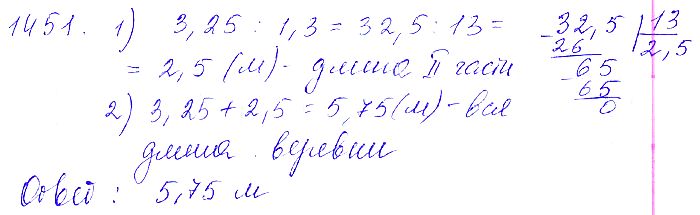 1451. 1) 3,25 : 1,3 = 32,5 : 13 =
= 2,5 (м) - длина II части
2) 3,25 + 2,5 = 5,75 (м) - вся
длина верёвки
Ответ : 5,75 м
- 32,5 | 13
26 2,5
- 65
65
0